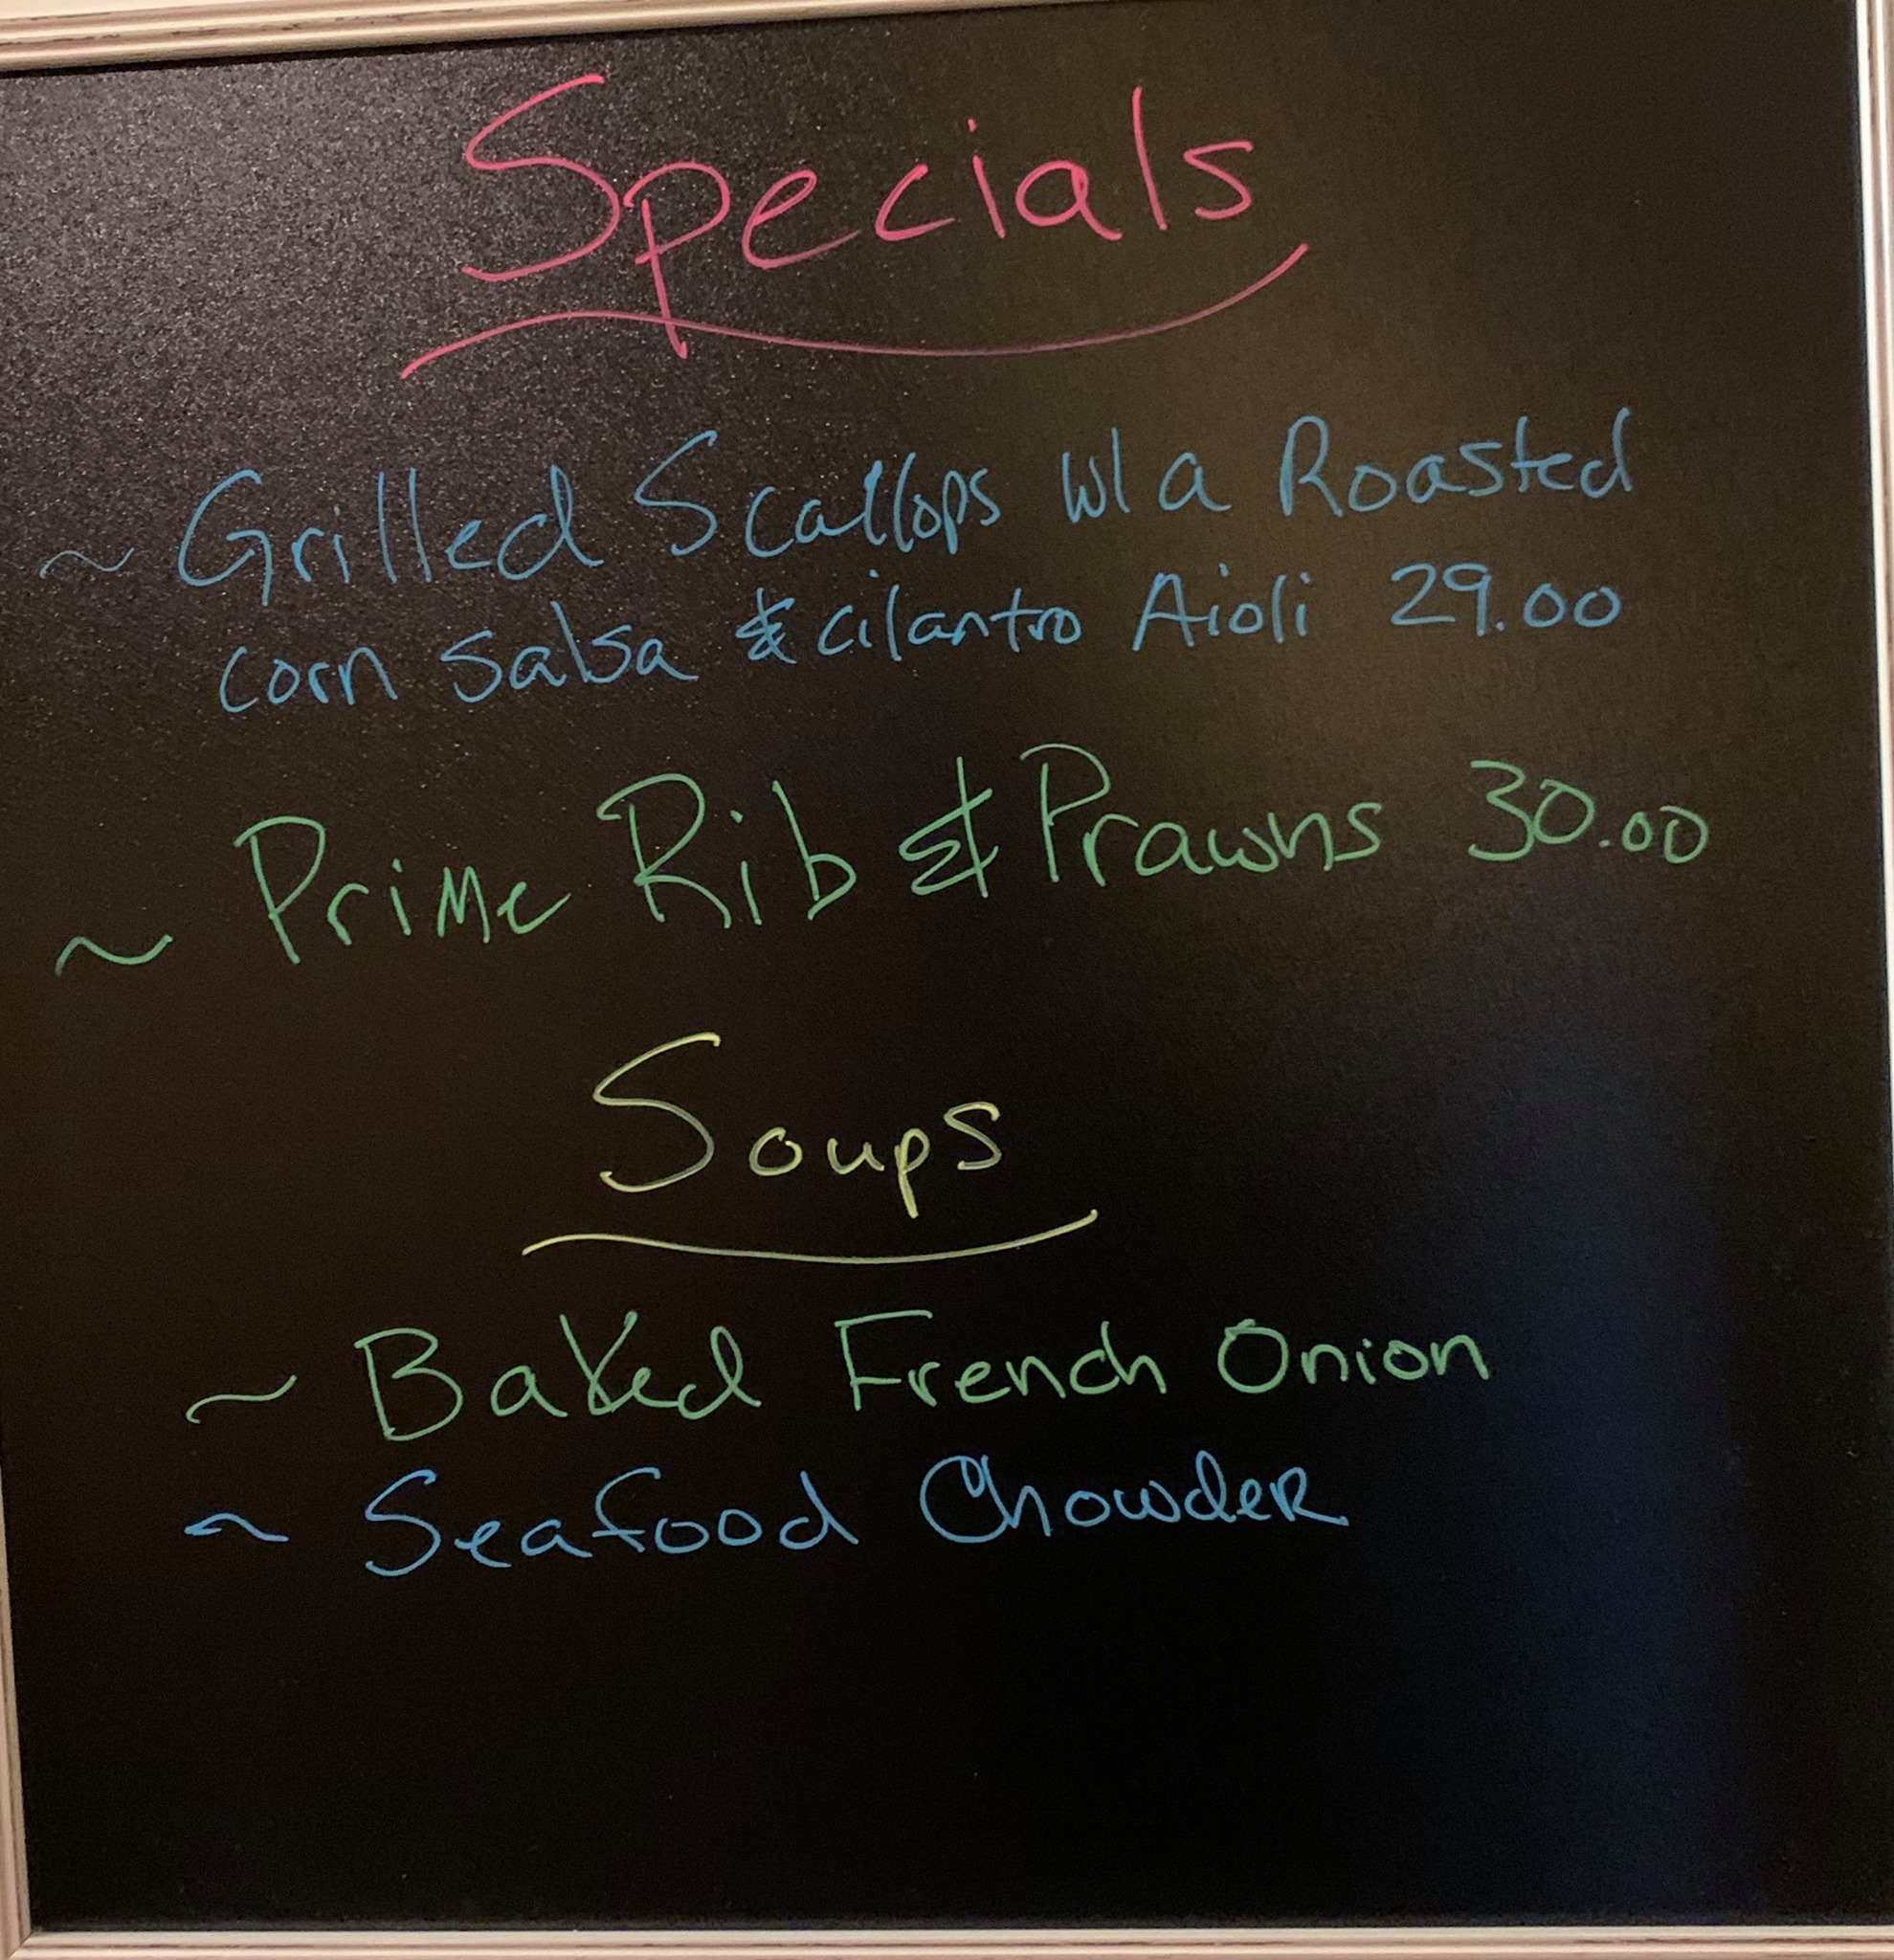 Specials
~ Grilled Scallops w/ a Roasted
corn Salsa & cilantro Aioli 29.00
~ Prime Rib & Prawns 30.00
Soups
~ Baked French Onion
~ Seafood Chowder